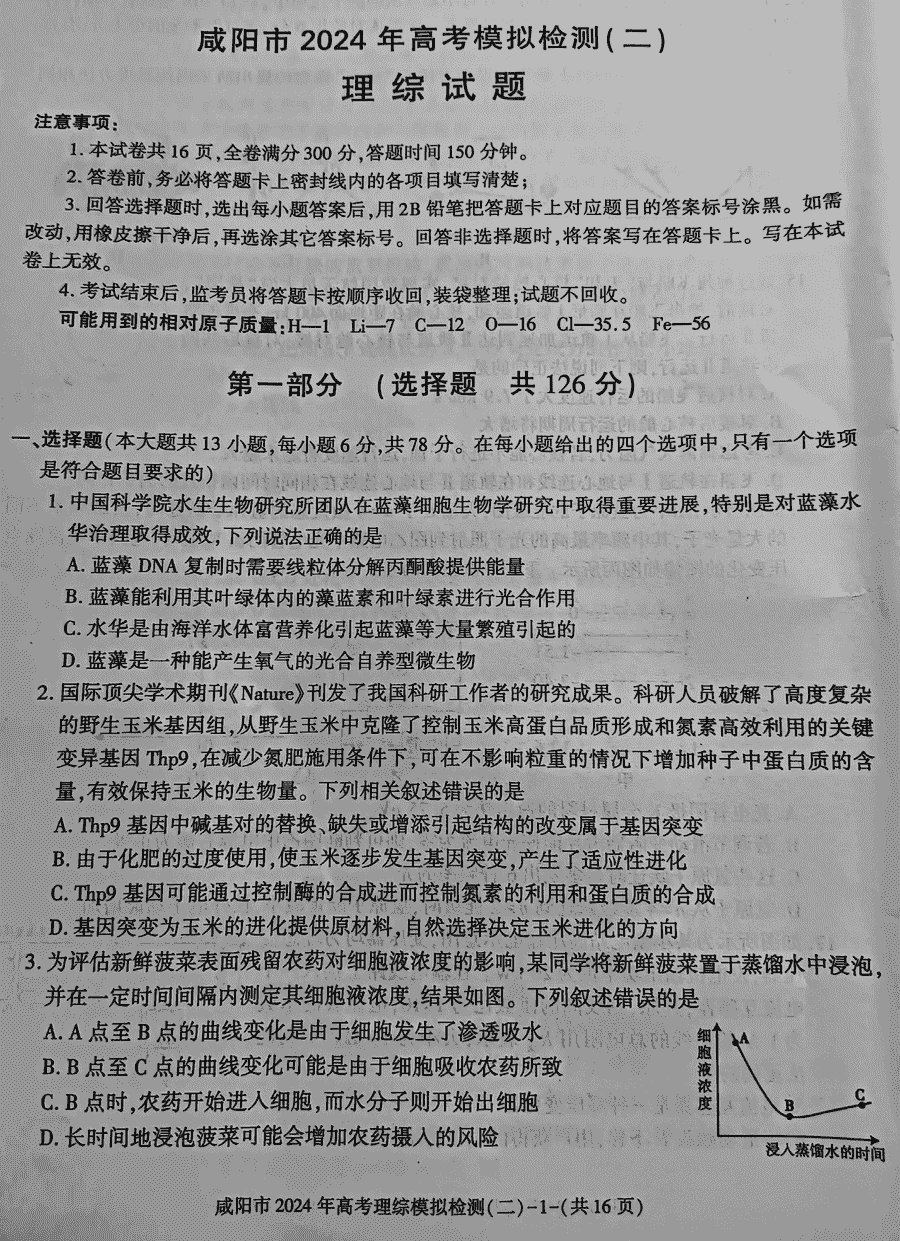 咸阳市2024年高考模拟检测(二)
理综试题
注意事项:
1.本试卷共16页,全卷满分300分,答题时间150分钟。
2.答卷前,务必将答题卡上密封线内的各项目填写清楚;
3.回答选择题时,选出每小题答案后,用2B铅笔把答题卡上对应题目的答案标号涂黑。如需
改动,用橡皮擦干净后,再选涂其它答案标号。回答非选择题时,将答案写在答题卡上。写在本试
卷上无效。
4.考试结束后,监考员将答题卡按顺序收回,装袋整理;试题不回收。
可能用到的相对原子质量:H—1 Li—7 C—12 O—16 Cl—35.5 Fe—56
第一部分 (选择题 共126分)
一、选择题(本大题共13小题,每小题6分,共78分。在每小题给出的四个选项中,只有一个选项
是符合题目要求的)
1.中国科学院水生生物研究所团队在蓝藻细胞生物学研究中取得重要进展,特别是对蓝藻水
华治理取得成效,下列说法正确的是
A.蓝藻DNA复制时需要线粒体分解丙酮酸提供能量
B.蓝藻能利用其叶绿体内的藻蓝素和叶绿素进行光合作用
C.水华是由海洋水体富营养化引起蓝藻等大量繁殖引起的
D.蓝藻是一种能产生氧气的光合自养型微生物
2.国际顶尖学术期刊《Nature》刊发了我国科研工作者的研究成果。科研人员破解了高度复杂
的野生玉米基因组,从野生玉米中克隆了控制玉米高蛋白品质形成和氮素高效利用的关键
变异基因Thp9,在减少氮肥施用条件下,可在不影响粒重的情况下增加种子中蛋白质的含
量,有效保持玉米的生物量。下列相关叙述错误的是
A.Thp9基因中碱基对的替换、缺失或增添引起结构的改变属于基因突变
B.由于化肥的过度使用,使玉米逐步发生基因突变,产生了适应性进化
C.Thp9基因可能通过控制酶的合成进而控制氮素的利用和蛋白质的合成
D.基因突变为玉米的进化提供原材料,自然选择决定玉米进化的方向
3.为评估新鲜菠菜表面残留农药对细胞液浓度的影响,某同学将新鲜菠菜置于蒸馏水中浸泡,
并在一定时间间隔内测定其细胞液浓度,结果如图。下列叙述错误的是
A.A点至B点的曲线变化是由于细胞发生了渗透吸水
B.B点至C点的曲线变化可能是由于细胞吸收农药所致
C.B点时,农药开始进入细胞,而水分子则开始出细胞
D.长时间地浸泡菠菜可能会增加农药摄入的风险
细胞液浓度
A
B
C
浸入蒸馏水的时间
咸阳市2024年高考理综模拟检测(二)-1-(共16页)